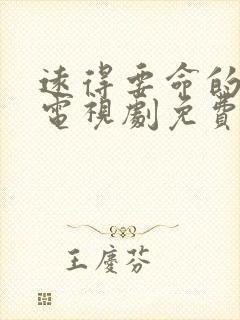 遠得要命的
電視劇免費
王慶芬